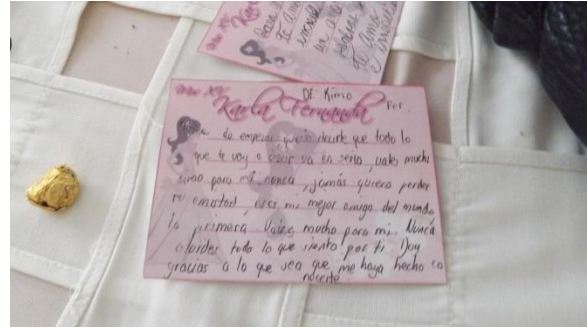 Mis XV
Kar
Para
Te Amo
Te amo
e
Mis XV
De Kimo
Karla Fernanda
Fer
de empezar quiero decirte que todo lo
que te voy a decir va en serio, vales mucho
para mi nunca, jamás quiero perder
tu amistad, eres mi mejor amiga del mundo
la primera Vales mucho para mi. Nunca
olvides todo lo que siento por ti Doy
gracias a lo que sea que me haya hecho co
nocerte